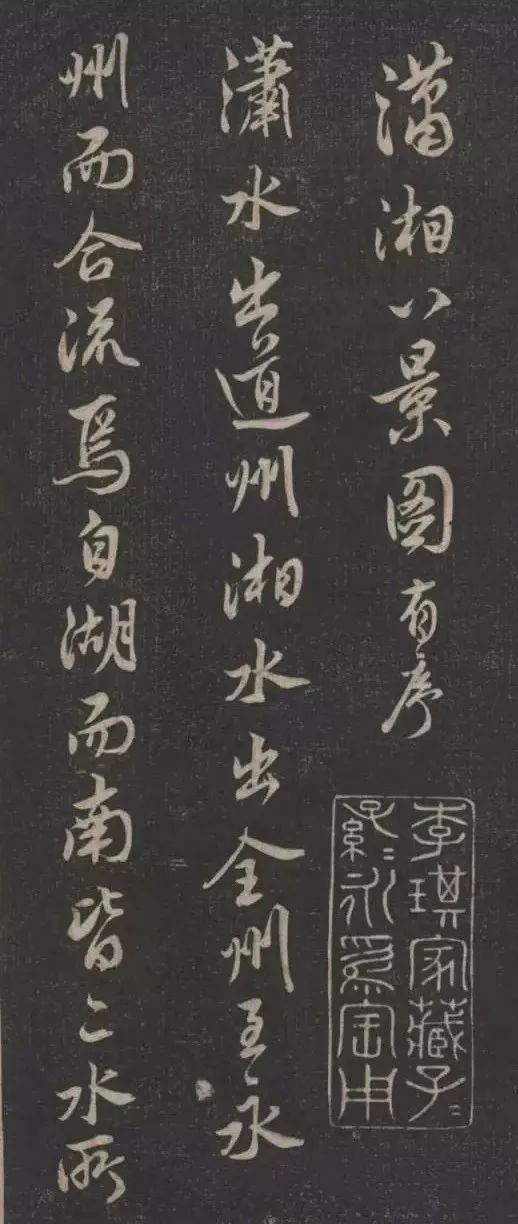 瀟湘八景圖有序
李琪家藏子〻
孫〻永爲宝用
瀟水出道州湘水出全州至永
州而合流焉自湖而南皆二水所